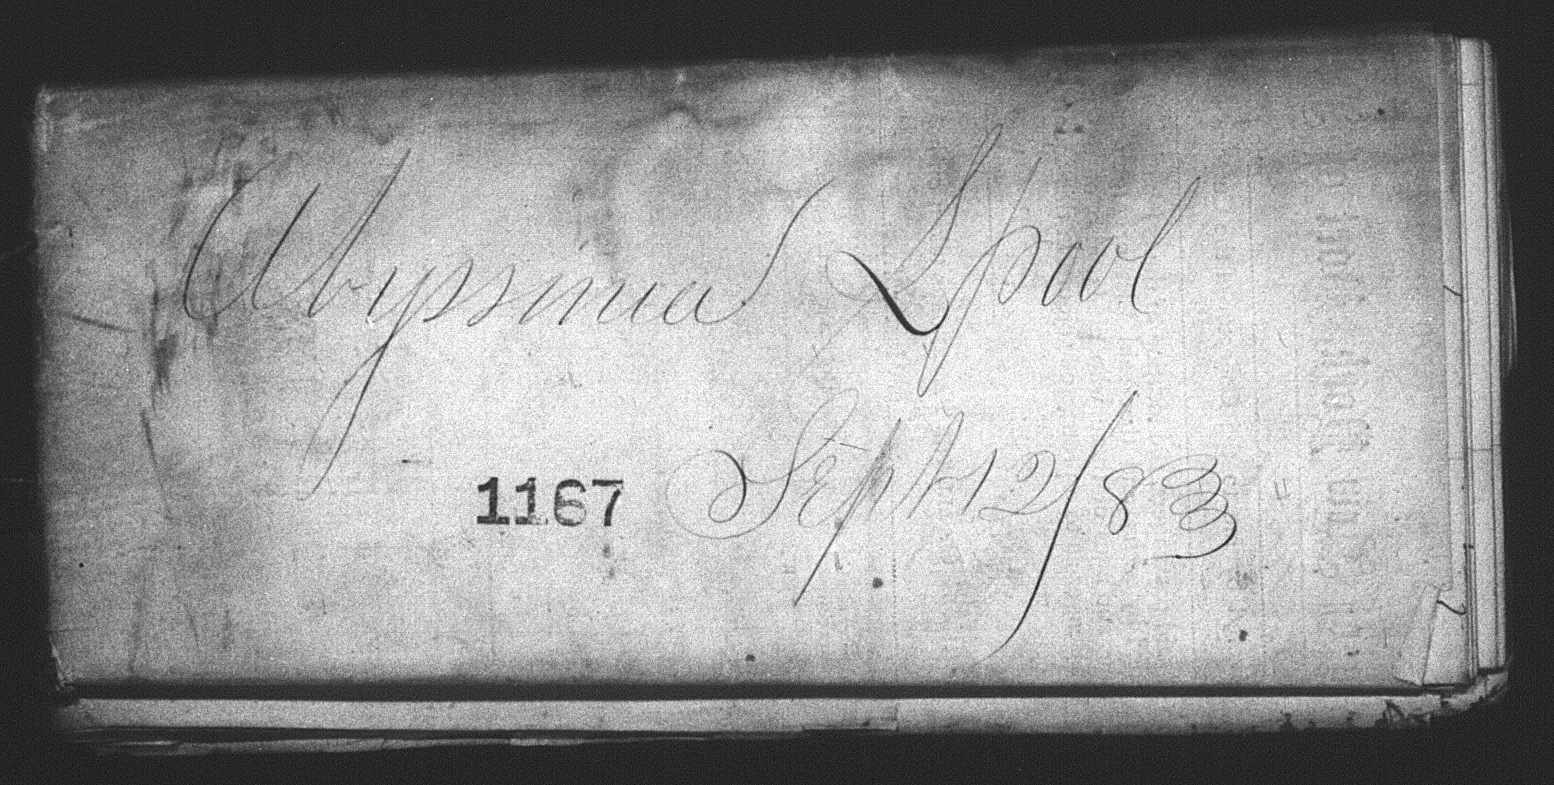 Abyssinia L'pool
1167 Sept 12/83